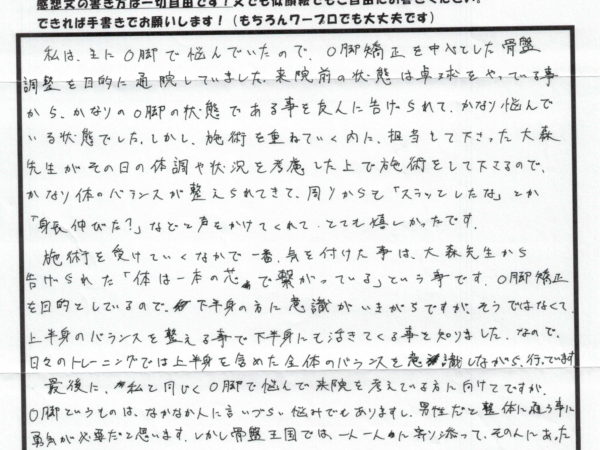 感想文の書き方は一切自由です！文でも似顔絵でもご自由にお書きください。
できれば手書きでお願いします！（もちろんワープロでも大丈夫です）
私は、主にO脚で悩んでいたので、O脚矯正を中心とした骨盤
調整を目的に通院していました。来院前の状態は卓球をやっている事
から、かなりのO脚の状態である事を友人に告げられて、かなり悩んで
いる状態でした。しかし、施術を重ねていく内に、担当して下さった大森
先生がその日の体調や状況を考慮した上で施術をして下さるので、
かなり体のバランスが整えられてきて、周りからも「スラッとしたな」とか
「身長伸びた？」などと声をかけてくれて、とても嬉しかったです。
施術を受けていくなかで一番、気を付けた事は、大森先生から
告げられた「体は一本の芯で繋がっている」という事です。O脚矯正
を目的としているので、下半身の方に意識がいきがちですが、そうではなくて、
上半身のバランスを整える事で下半身にも活きてくる事を知りました。なので、
日々のトレーニングでは上半身を含めた全体のバランスを意識しながら、行っています
最後に、私と同じくO脚で悩んで来院を考えている方に向けてですが、
O脚というものは、なかなか人に言いづらい悩みでもありますし、男性だと整体に通う事に
勇気が必要だと思います。しかし骨盤王国では、一人一人に寄り添って、その人にあった